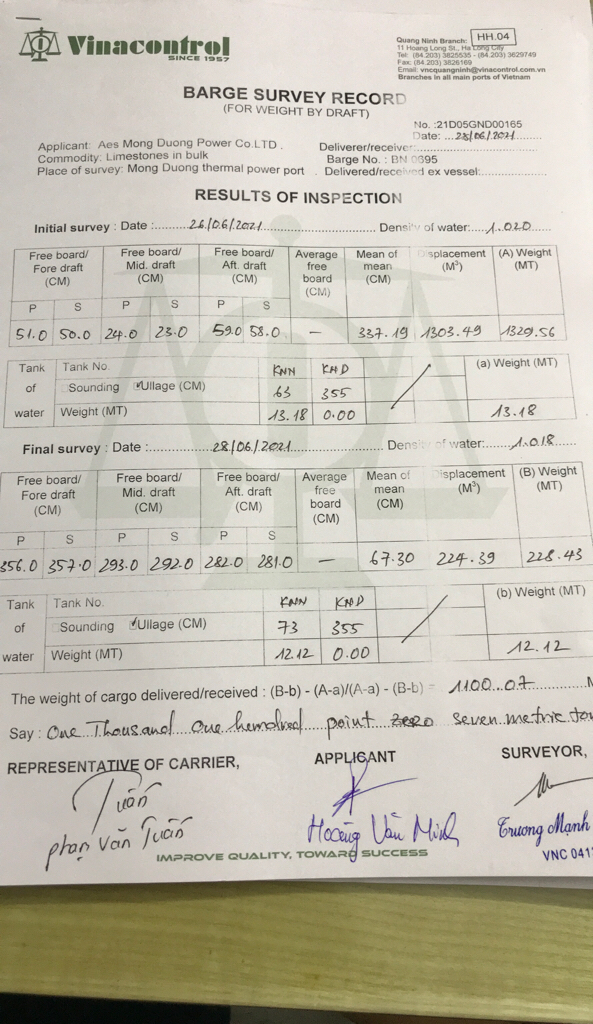 Vinacontrol
SINCE 1957
Quang Ninh Branch: HH.04
11 Hoang Long St., Ha Long City
Tel: (84.203) 3825535 - (84.203) 3629749
Fax: (84.203) 3826169
Email: vncquangninh@vinacontrol.com.vn
Branches in all main ports of Vietnam
BARGE SURVEY RECORD
(FOR WEIGHT BY DRAFT)
No. :21D05GND00165
Date: ...28/06/2021
Applicant: Aes Mong Duong Power Co.LTD . Deliverer/receiver:
Commodity: Limestones in bulk Barge No. : BN 0695
Place of survey: Mong Duong thermal power port . Delivered/received ex vessel:
RESULTS OF INSPECTION
Initial survey : Date : 26/06/2021 Density of water: 1.020
Free board/ Fore draft (CM) Free board/ Mid. draft (CM) Free board/ Aft. draft (CM) Average free board (CM) Mean of mean (CM) Displacement (M³) (A) Weight (MT)
P S P S P S
51.0 50.0 24.0 23.0 59.0 58.0 — 337.19 1303.49 1329.56
Tank of water Tank No. KNN KHD (a) Weight (MT)
Sounding Ullage (CM) 63 355
Weight (MT) 13.18 0.00 13.18
Final survey : Date : 28/06/2021 Density of water: 1.018
Free board/ Fore draft (CM) Free board/ Mid. draft (CM) Free board/ Aft. draft (CM) Average free board (CM) Mean of mean (CM) Displacement (M³) (B) Weight (MT)
P S P S P S
356.0 357.0 293.0 292.0 282.0 281.0 — 67.30 224.39 228.43
Tank of water Tank No. KNN KHD (b) Weight (MT)
Sounding Ullage (CM) 73 355
Weight (MT) 12.12 0.00 12.12
The weight of cargo delivered/received : (B-b) - (A-a)/(A-a) - (B-b) = 1100.07 M
Say : One Thousand one hundred point zero seven metric ton
REPRESENTATIVE OF CARRIER, APPLICANT SURVEYOR,
Tuấn
phan Văn Tuấn Hoàng Văn Minh Trương Mạnh
IMPROVE QUALITY, TOWARD SUCCESS
VNC 041